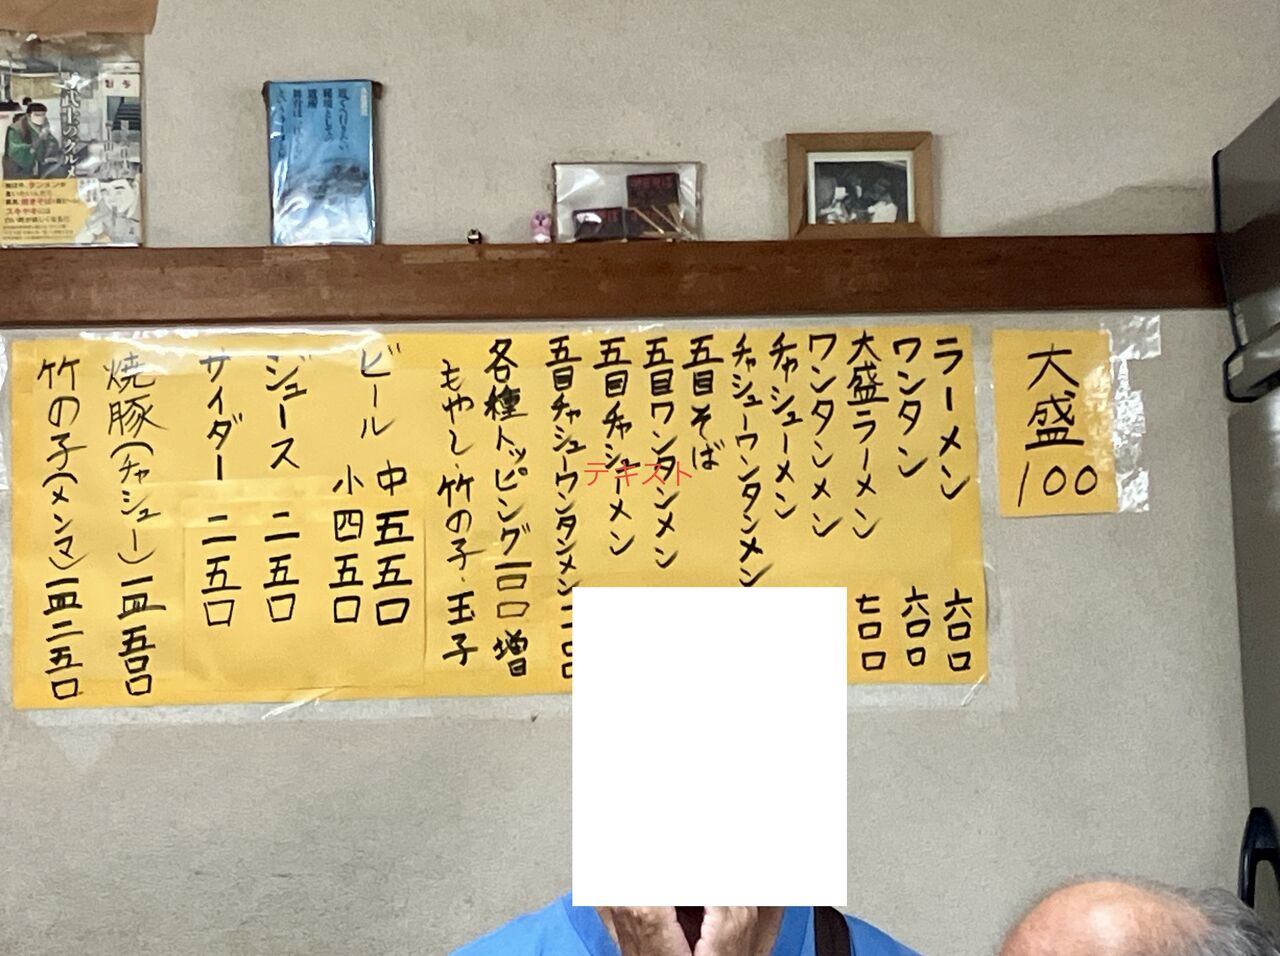 大盛
100
ラーメン 六〇〇
ワンタン 六〇〇
大盛ラーメン 七〇〇
ワンタンメン
チャシューメン
チャシューワンタンメン
五目そば
五目ワンタンメン
五目チャシューメン
五目チャシューワンタンメン
各種トッピング一〇〇増
もやし、竹の子、玉子
ビール 中 五五〇
小 四五〇
ジュース 二五〇
サイダー 二五〇
焼豚(チャシュー)一皿五〇〇
竹の子(メンマ)一皿二五〇
テキスト
武士のグルメ